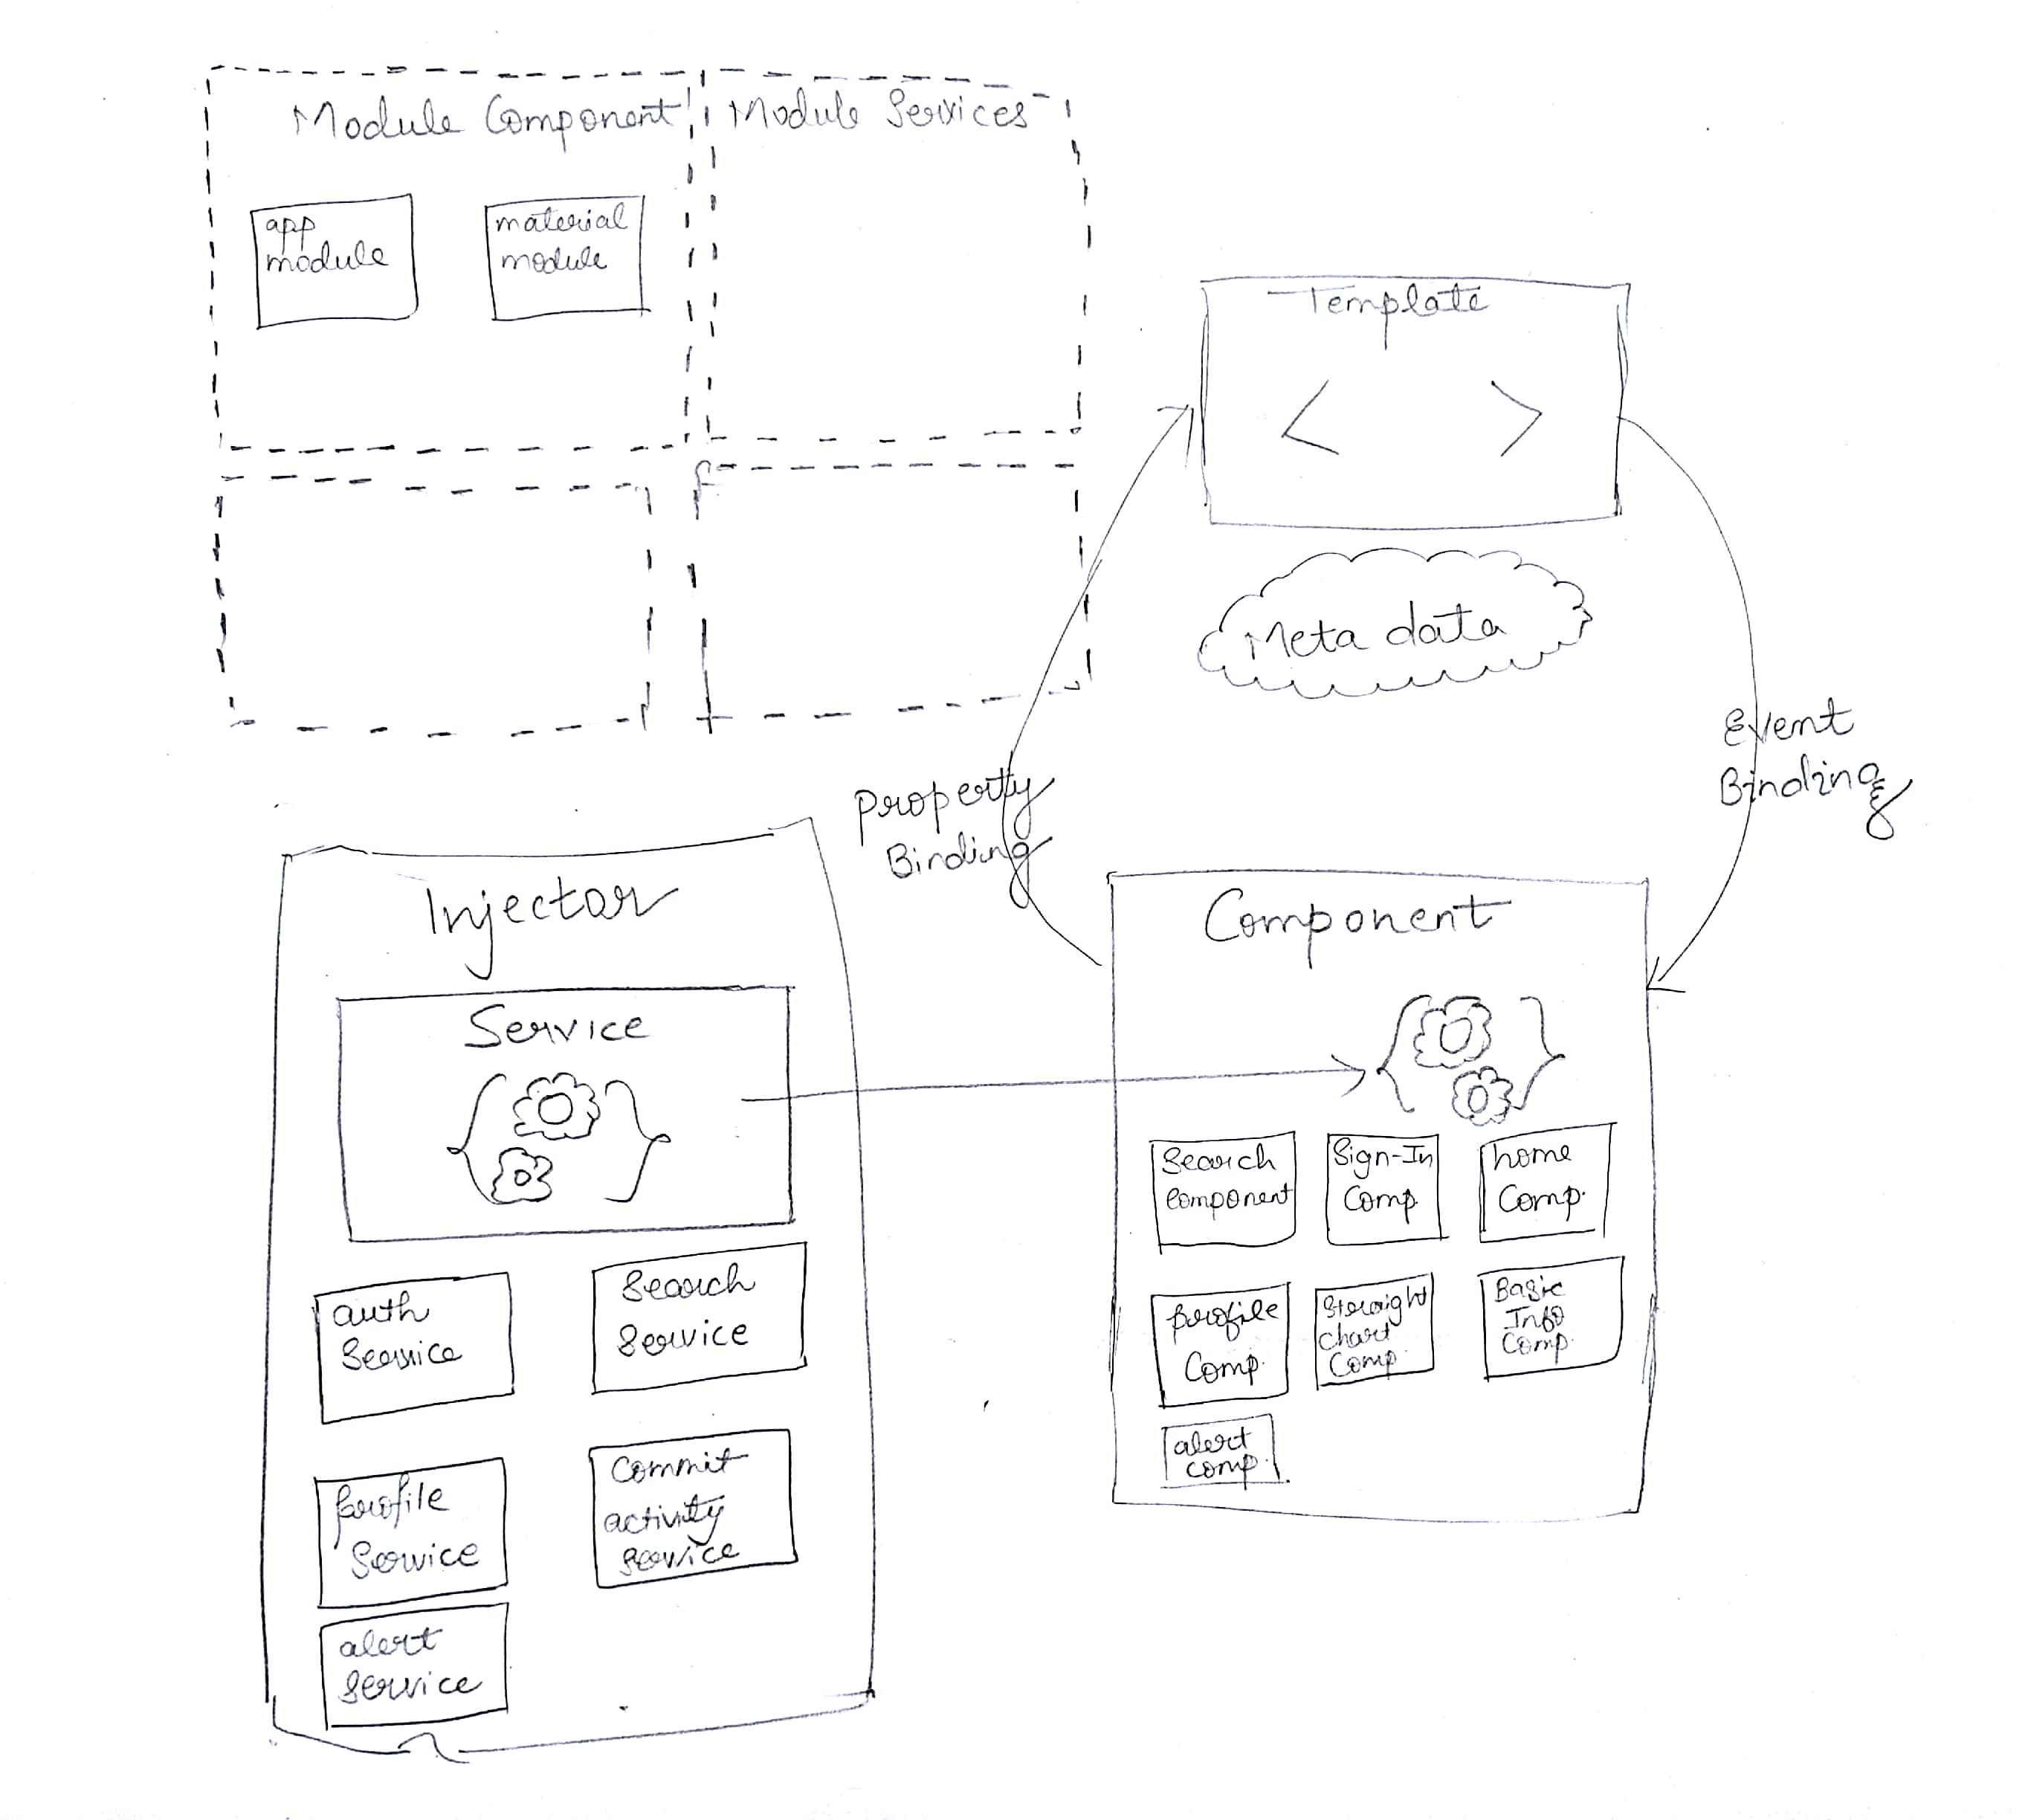 Module Component
Module Services
app
module
material
module
Template
< >
Meta data
Event
Binding
Property
Binding
Injector
Service
auth
Service
Search
Service
profile
Service
Commit
activity
Service
alert
Service
Component
Search
Component
Sign-In
Comp.
home
Comp.
profile
Comp.
Straight
Chart
Comp.
Basic
Info
Comp.
alert
comp.